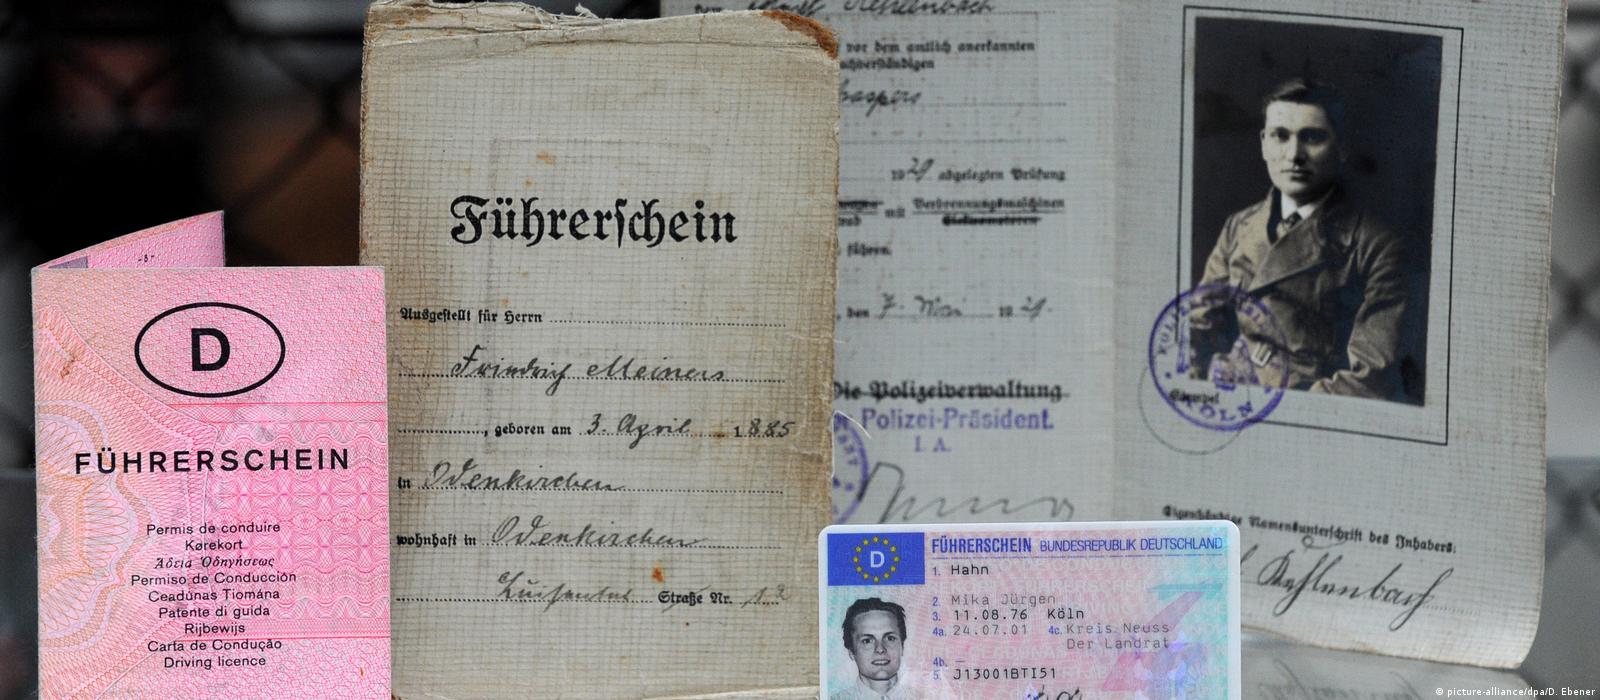 -5-
D
FÜHRERSCHEIN
Permis de conduire
Kørekort
Άδεια Οδηγήσεως
Permiso de Conducción
Ceadúnas Tiomána
Patente di guida
Rijbewijs
Carta de Condução
Driving licence
Führerschein
Ausgestellt für Herrn
Friedrich Meiners
, geboren am 3. April 1885
in Odenkirchen
wohnhaft in Odenkirchen
Straße Nr. 12
vor dem amtlich anerkannten
19 29 abgelegten Prüfung
mit Verbrennungsmaschinen
führen.
, den 7. Mai 19 29.
Die Polizeiverwaltung
Polizei-Präsident.
I. A.
KÖLN
Eigenhändige Namensunterschrift des Inhabers:
Kehlenbach
D
FÜHRERSCHEIN BUNDESREPUBLIK DEUTSCHLAND
1. Hahn
2. Mika Jürgen
3. 11.08.76 Köln
4a. 24.07.01 4c. Kreis Neuss
Der Landrat
4b. —
5. J13001BTI51
© picture-alliance/dpa/D. Ebener